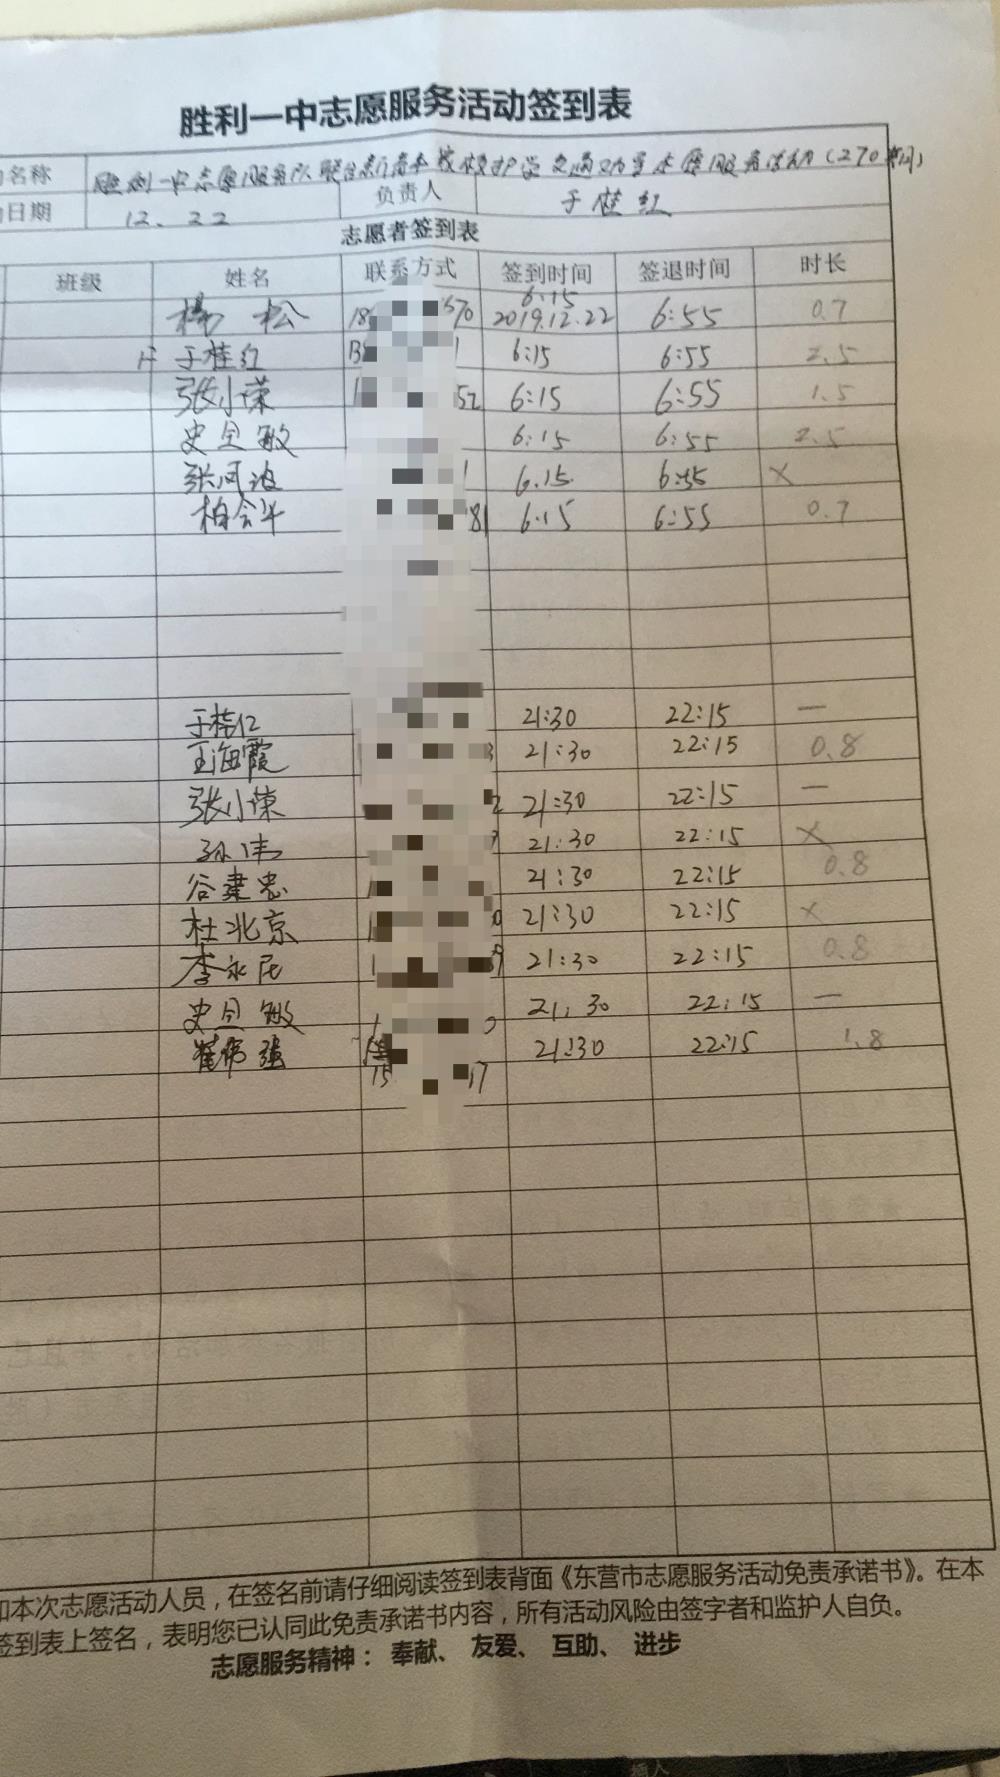 胜利一中志愿服务活动签到表
名称 胜利一中志愿服务队联合 交通 志愿服务活动(270
日期 12.22 负责人 于桂红
志愿者签到表
班级 姓名 联系方式 签到时间 签退时间 时长
杨松 18 570 6:15 2019.12.22 6:55 0.7
于桂红 13 1 6:15 6:55 2.5
张小荣 1 52 6:15 6:55 1.5
史 敏 6:15 6:55 2.5
张凤波 1 6.15 6:55 ×
柏会平 81 6.15 6:55 0.7
于桂红 21:30 22:15 —
王海霞 3 21:30 22:15 0.8
张小荣 2 21:30 22:15 —
孙伟 21:30 22:15 ×
谷建忠 1 21:30 22:15 0.8
杜北京 1 0 21:30 22:15 ×
李永 1 9 21:30 22:15 0.8
史 敏 1 21:30 22:15 —
崔伟强 21:30 22:15 1.8
15 17
加本次志愿活动人员，在签名前请仔细阅读签到表背面《东营市志愿服务活动免责承诺书》。在本
签到表上签名，表明您已认同此免责承诺书内容，所有活动风险由签字者和监护人自负。
志愿服务精神：奉献、友爱、互助、进步
插入